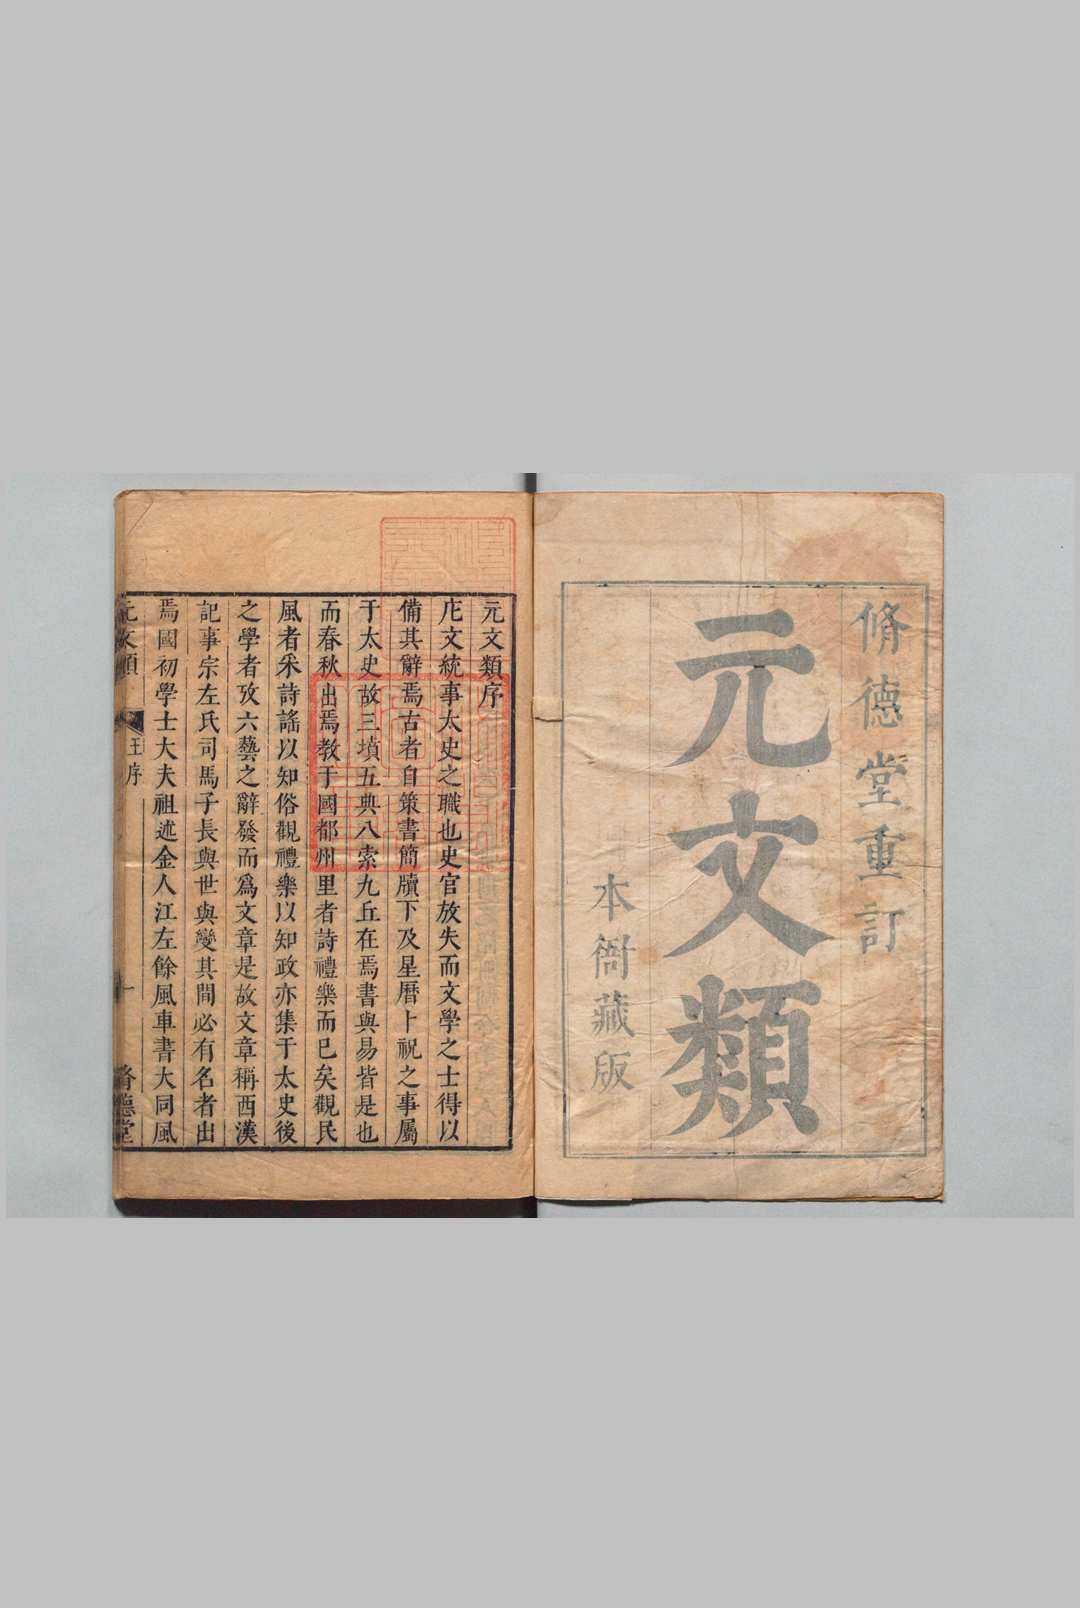 脩德堂重訂
元文類
本衙藏版
元文類序
庀文統事太史之職也史官放失而文學之士得以
備其辭焉古者自策書簡牘下及星曆卜祝之事屬
于太史故三墳五典八索九丘在焉書與易皆是也
而春秋出焉教于國都州里者詩禮樂而已矣觀民
風者釆詩謠以知俗觀禮樂以知政亦集于太史後
之學者攷六藝之辭發而爲文章是故文章稱西漢
記事宗左氏司馬子長與世與變其間必有名者出
焉國初學士大夫祖述金人江左餘風車書大同風
元文類 王序 一 脩德堂